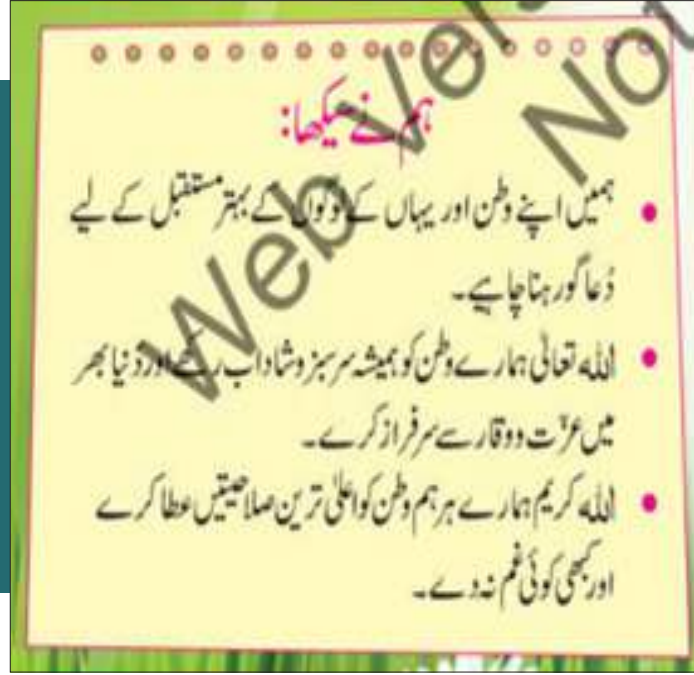 ہم نے سیکھا:
ہمیں اپنے وطن اور یہاں کے لوگوں کے بہتر مستقبل کے لیے
دُعا گو رہنا چاہیے۔
اللہ تعالیٰ ہمارے وطن کو ہمیشہ سرسبز و شاداب رکھے اور دُنیا بھر
میں عزّت و وقار سے سرفراز کرے۔
اللہ کریم ہمارے ہر ہم وطن کو اعلیٰ ترین صلاحیتیں عطا کرے
اور کبھی کوئی غم نہ دے۔
Web Ver
Not